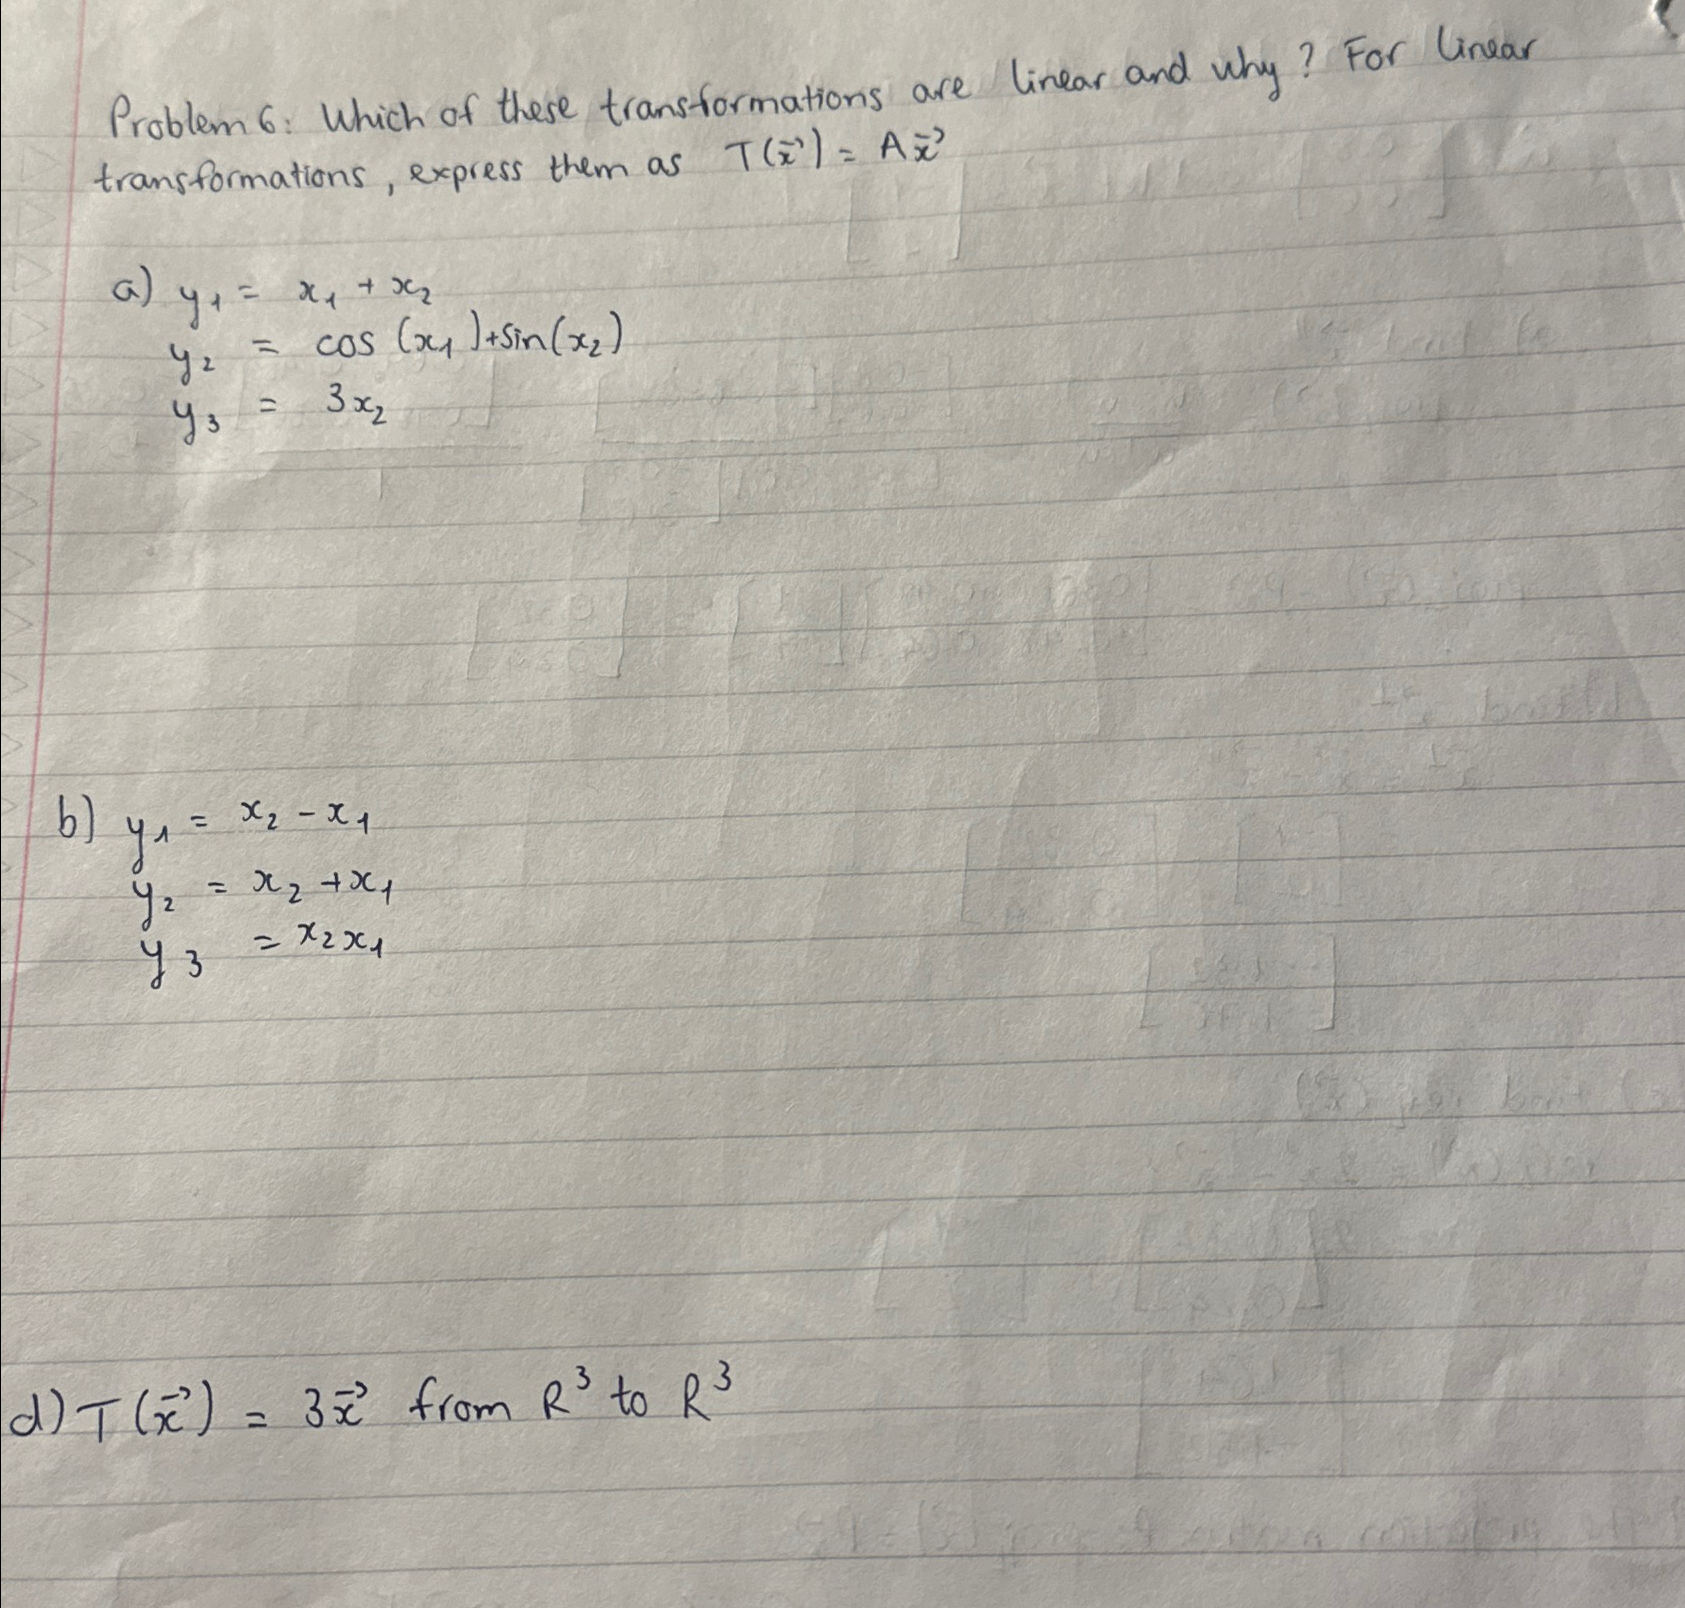 Problem 6: Which of these transformations are linear and why? For linear
transformations, express them as T(x⃗) = Ax⃗
a) y₁ = x₁ + x₂
y₂ = cos (x₁)+sin(x₂)
y₃ = 3x₂
b) y₁ = x₂ - x₁
y₂ = x₂ + x₁
y₃ = x₂x₁
d) T(x⃗) = 3x⃗ from R³ to R³